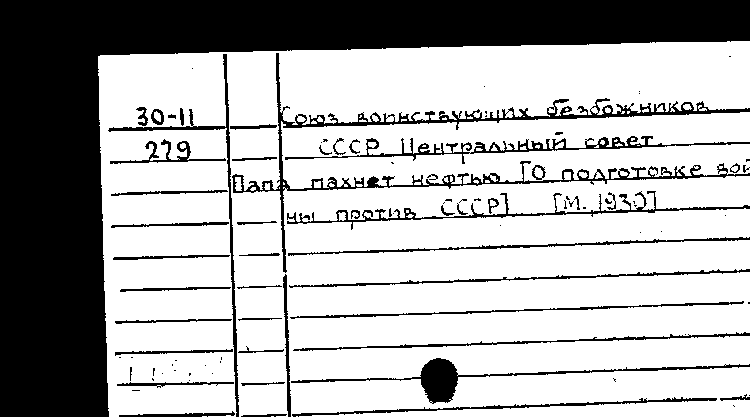 30-11 Союз воинствующих безбожников
279 СССР. Центральный совет.
Папа пахнет нефтью. [О подготовке вой
ны против СССР] [М. 1930]